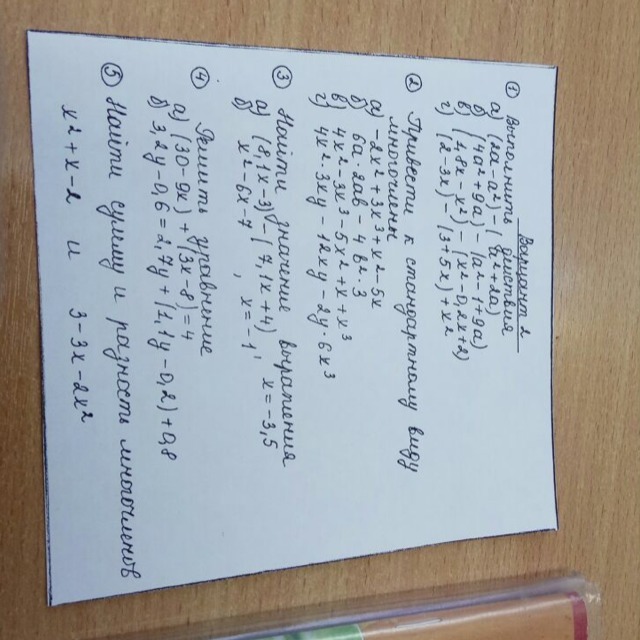 Вариант 2
① Выполните действия
а) (2a-a²)-(5a²-2a)
б) (4a²+9a)-(a²-1+9a)
в) (1,8x-x²)-(x²-0,2x+2)
г) (2-3x)-(3+5x)+x²
② Привести к стандартному виду
многочлены
а) -2x²+3x³+x²-5x
б) 6a·2ab-4b²·3
в) 4x²-3x³-5x²+x+x³
г) 4x²·3xy-12xy-2y·6x³
③ Найти значение выражения
а) (8,1x-3)-(7,1x+4), x=-3,5
б) x²-6x-7, x=-1
④ Решить уравнение
а) (30-9x)+(3x-8)=4
б) 3,2y-0,6=2,7y+(1,1y-0,2)+0,8
⑤ Найти сумму и разность многочленов
x²+x-2 и 3-3x-2x²